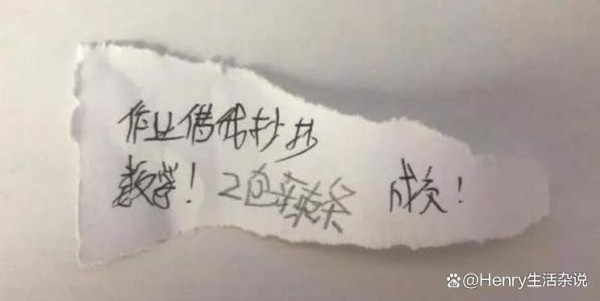 作业借我抄抄
数学！2包辣条 成交！
@Henry生活杂说